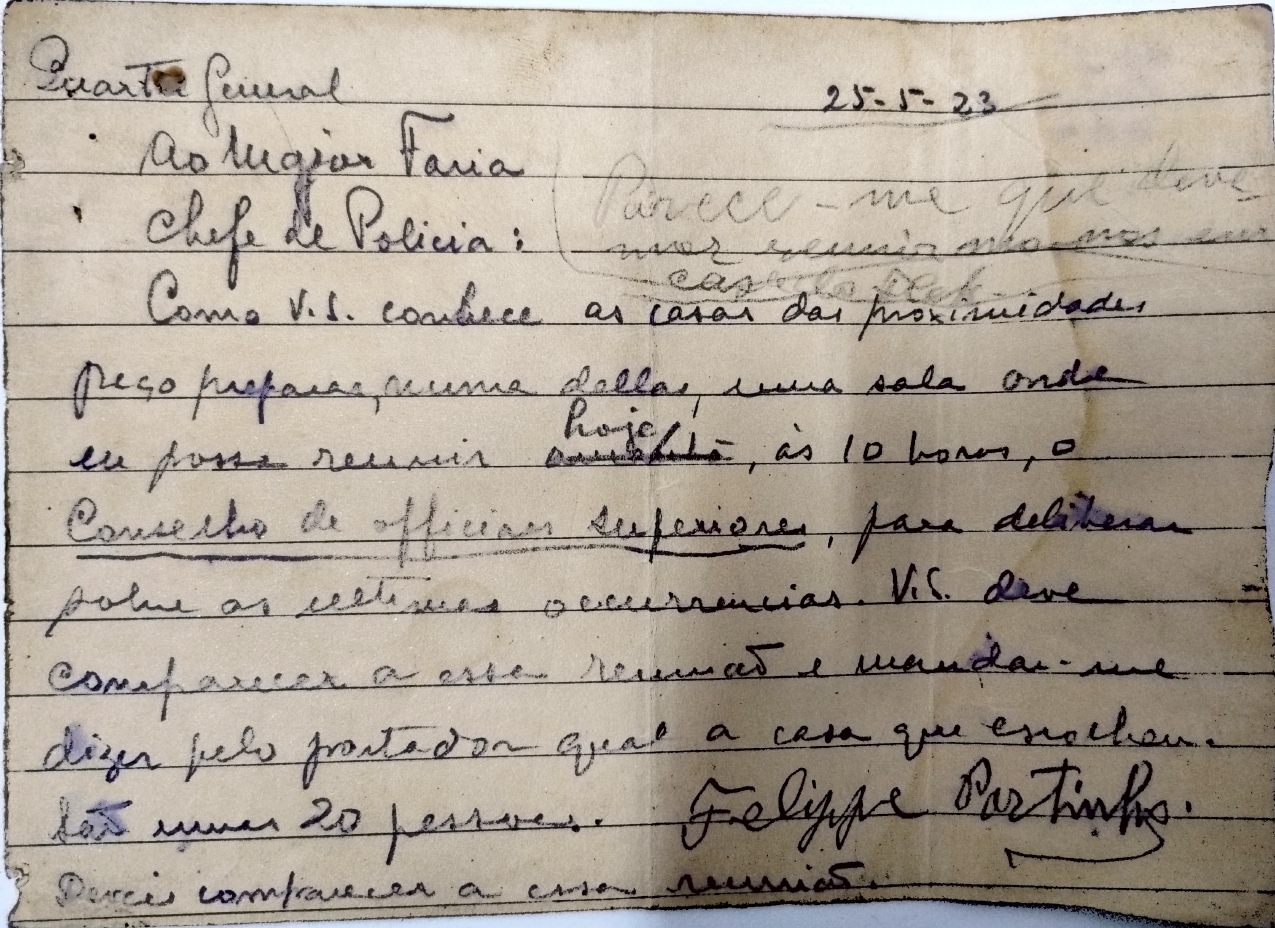 Quartel General
25-5-23
Ao Major Faria
Chefe de Policia:
Parece-me que deve-
mos reunir nos em
casa do
Como V.S. conhece as casas das proximidades
peço preparar, numa dellas, uma sala onde
hoje
eu possa reunir amanhã, às 10 horas, o
Conselho de officiaes superiores, para deliberar
sobre as ultimas occurrencias. V.S. deve
comparecer a essa reunião e mandar-me
dizer pelo portador qual a casa que escolheu.
São umas 20 pessoas.
Felippe Portinho.
Deveis comparecer a essa reunião.